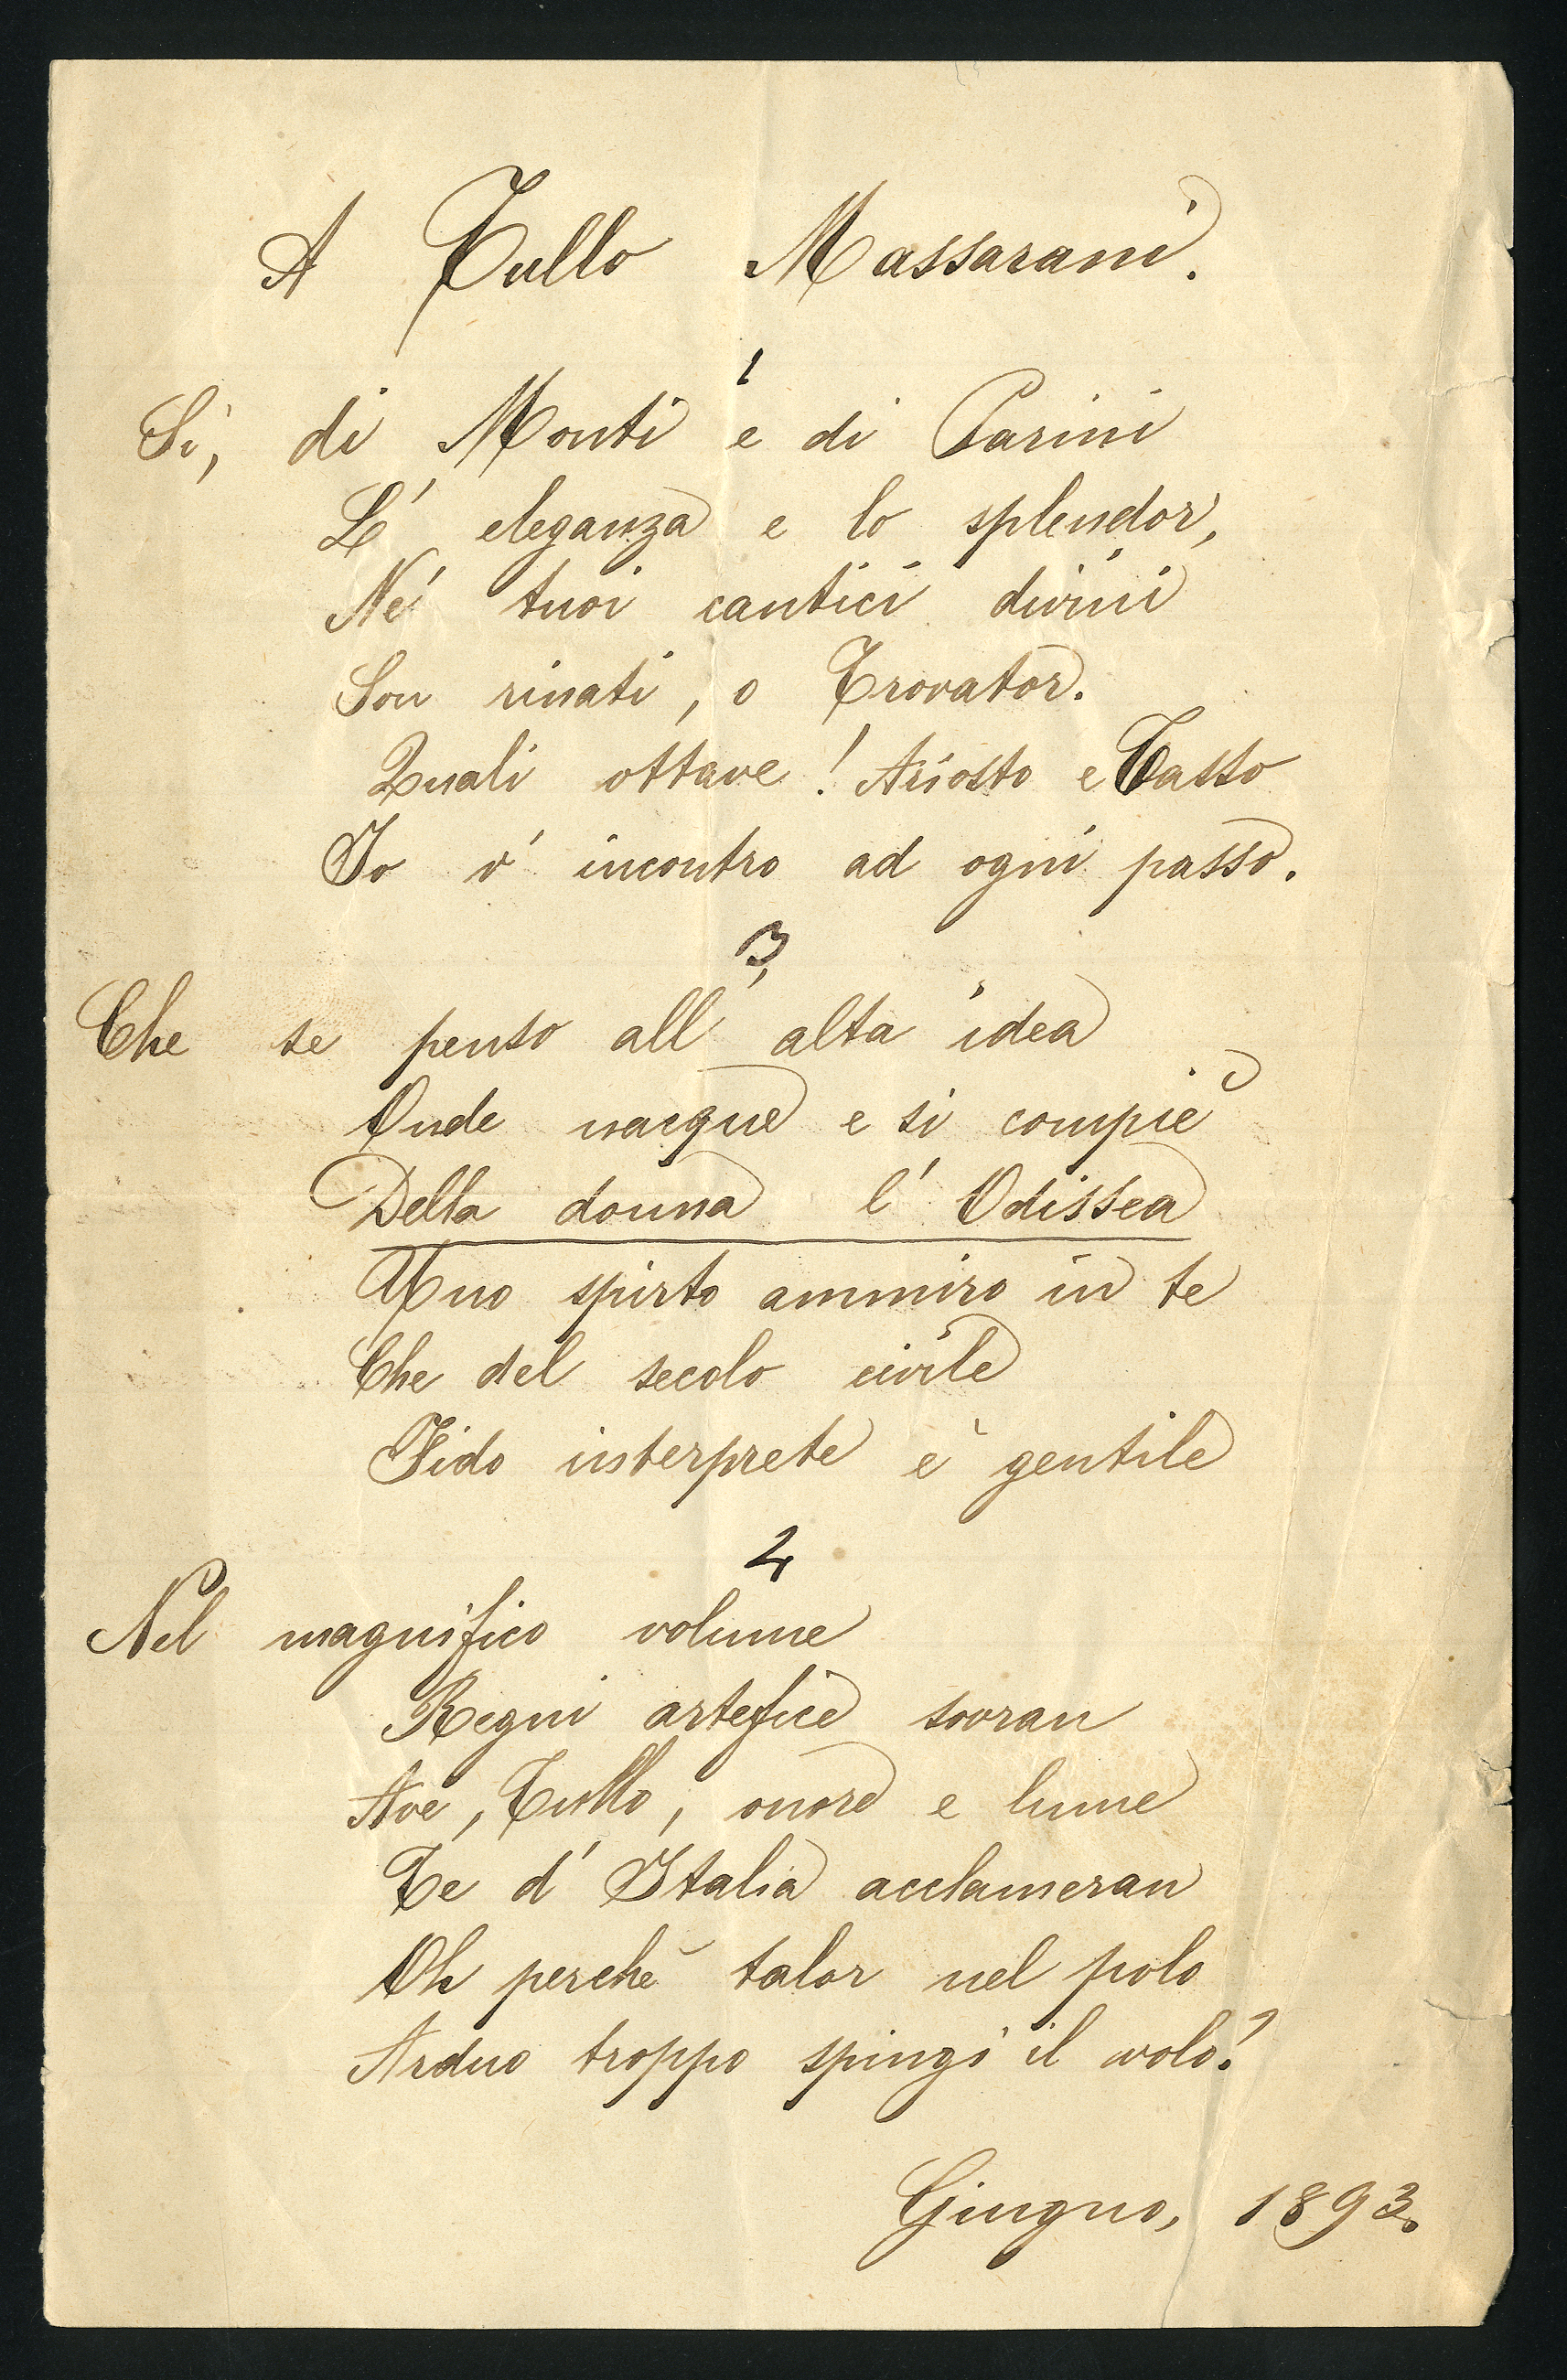 A Tullo Massarani.
1
Sì, di Monti e di Parini
L' eleganza e lo splendor,
Ne' tuoi cantici divini
Son rinati, o Trovator.
Quali ottave! Ariosto e Tasso
Io v' incontro ad ogni passo.
3
Che se penso all' alta idea
Onde nacque e si compiè
Della donna l' Odissea
Uno spirto ammiro in te
Che del secolo civile
Fido interprete è gentile
2
Nel magnifico volume
Regni artefice sovran
Ave, Tullo, onore e lume
Te d' Italia acclameran
Oh perchè talor nel polo
Arduo troppo spingi il volo?
Giugno, 1893.